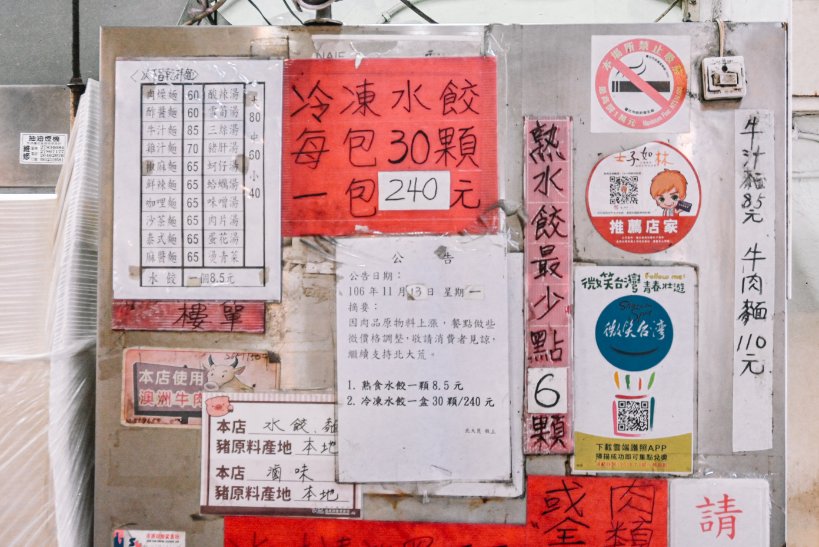 肉燥麵 60 酸辣湯
酢醬麵 60
牛汁麵 85 三絲湯
雞汁麵 70 豬肝湯
椒麻麵 65 蚵仔湯
鮮辣麵 65 蛤蠣湯
咖哩麵 65 味噌湯
沙茶麵 65 肉片湯
泰式麵 65 蛋花湯
麻醬麵 65 燙青菜
大80 中60 小40
水餃 一個8.5元
樓單
冷凍水餃
每包30顆
一包240元
公 告
公告日期：
106 年 11 月 13 日 星期 一
摘要：
因肉品原物料上漲，餐點做些
微價格調整，敬請消費者見諒，
繼續支持北大荒。
1. 熟食水餃一顆 8.5 元
2. 冷凍水餃一盒 30 顆/240 元
北大荒 敬上
本店使用
澳洲牛肉
本店 水餃、麵
豬原料產地 本地
本店 滷味
豬原料產地 本地
熟水餃最少點6顆
本場所禁止吸菸
士子如林
推薦店家
微笑台灣 Follow me!
青春壯遊
微笑台灣
下載雲端護照APP
掃描成功即可集點兌獎
牛汁麵85元 牛肉麵110元
抽油煙機
肉類
或全
請